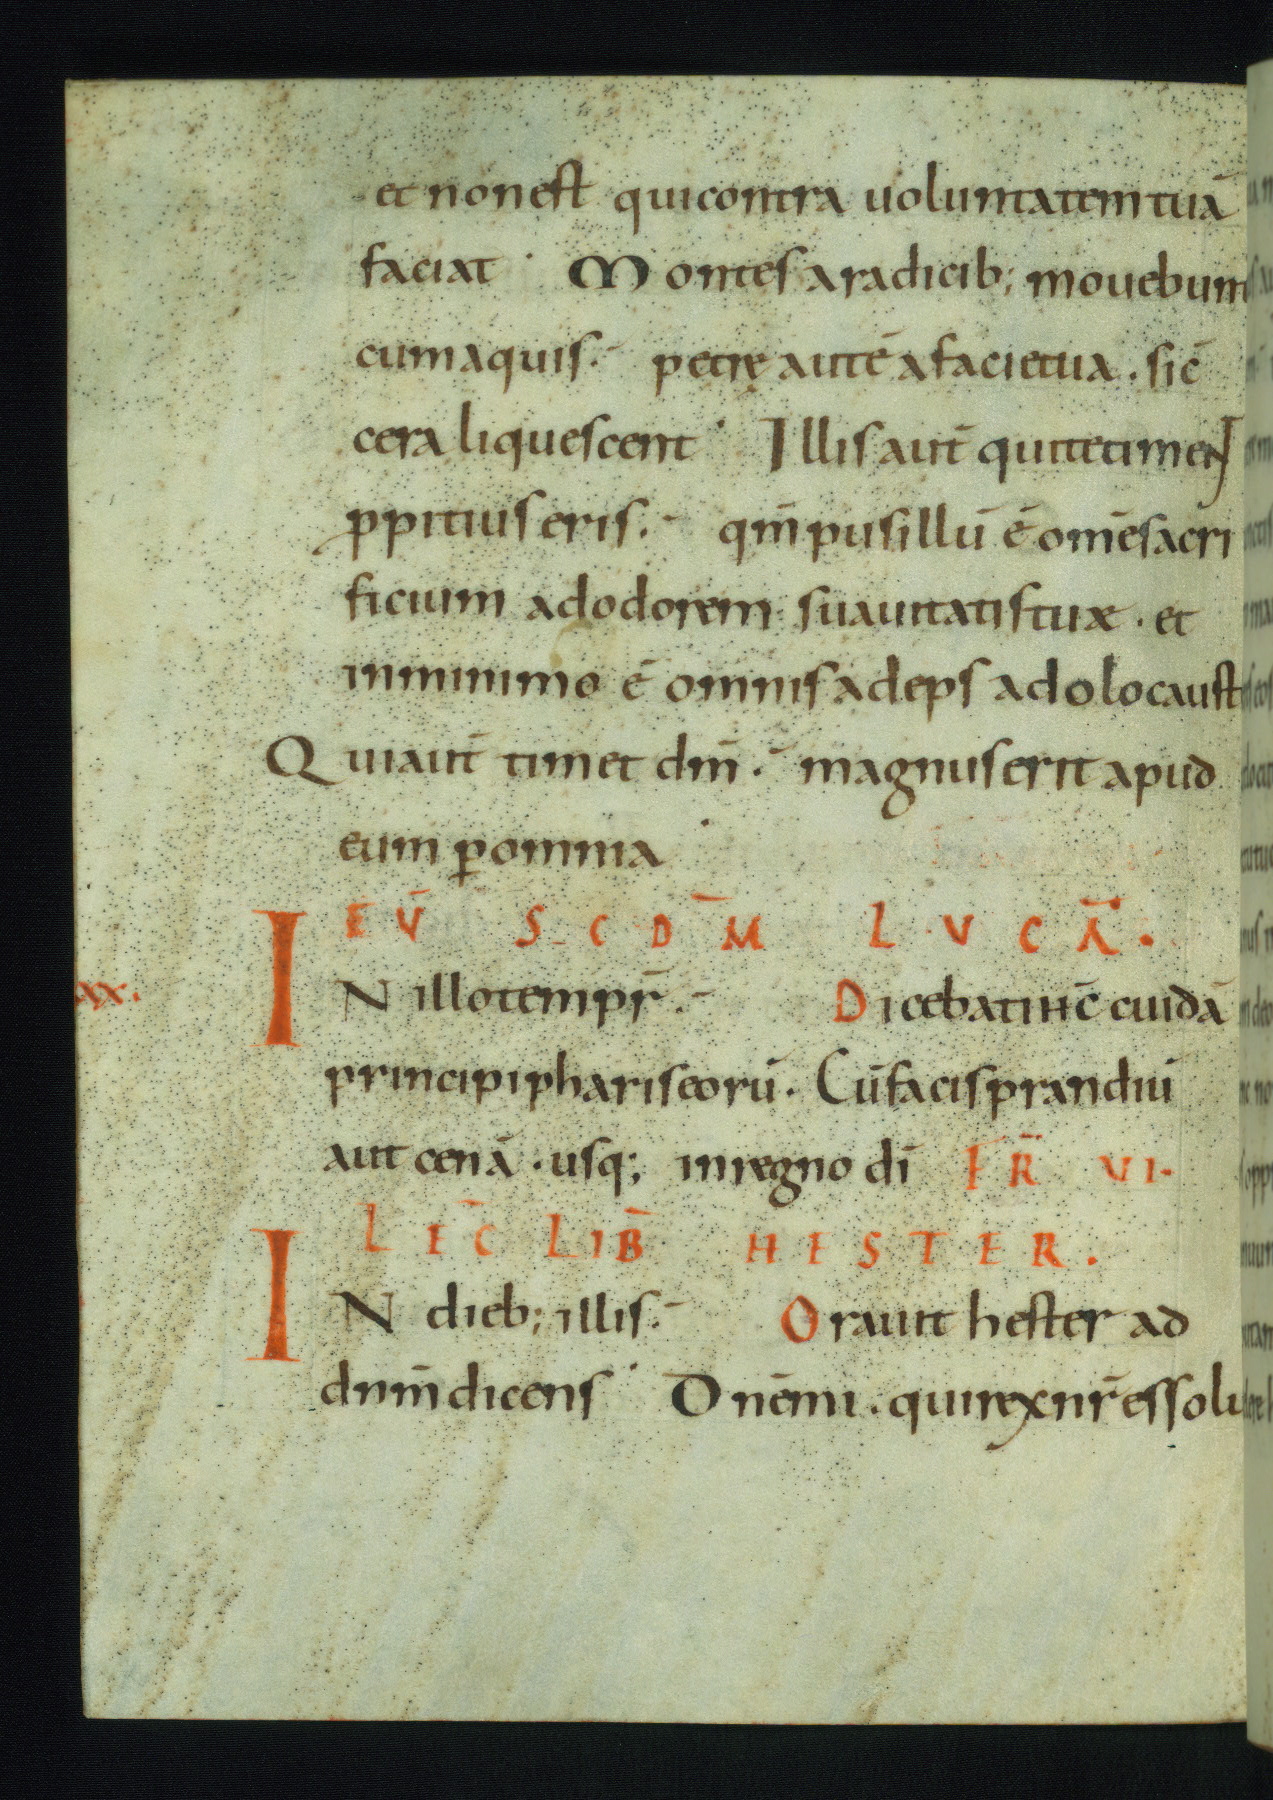 et non est qui contra uoluntatem tuā
faciat · Montes a radicib; mouebunt
cum aquis · petrę autē a facie tua · sic̄
cera liquescent · Illis aut̄ qui te timeN
ꝓpitius eris · qm̄ pusillū ē om̄e sacri
ficium ad odorem suauitatis tuæ · et
in minimo ē omnis adeps ad olocaust
Qui aut̄ timet dm̄ · magnus erit apud
eum ꝑ omnia
EV̄ SCDM̄ LVCĀ.
xx. IN illo tempr̄ · Dicebat ihc̄ cuidā
principi phariseorū · Cū facis prandiū
aut cenā · usq; in regno dī FR̄ VI.
LEC̄ LIB̄ HESTER.
IN dieb; illis · Orauit hester ad
dnm̄ dicens · Dnē mi · qui rex nr̄ es solu